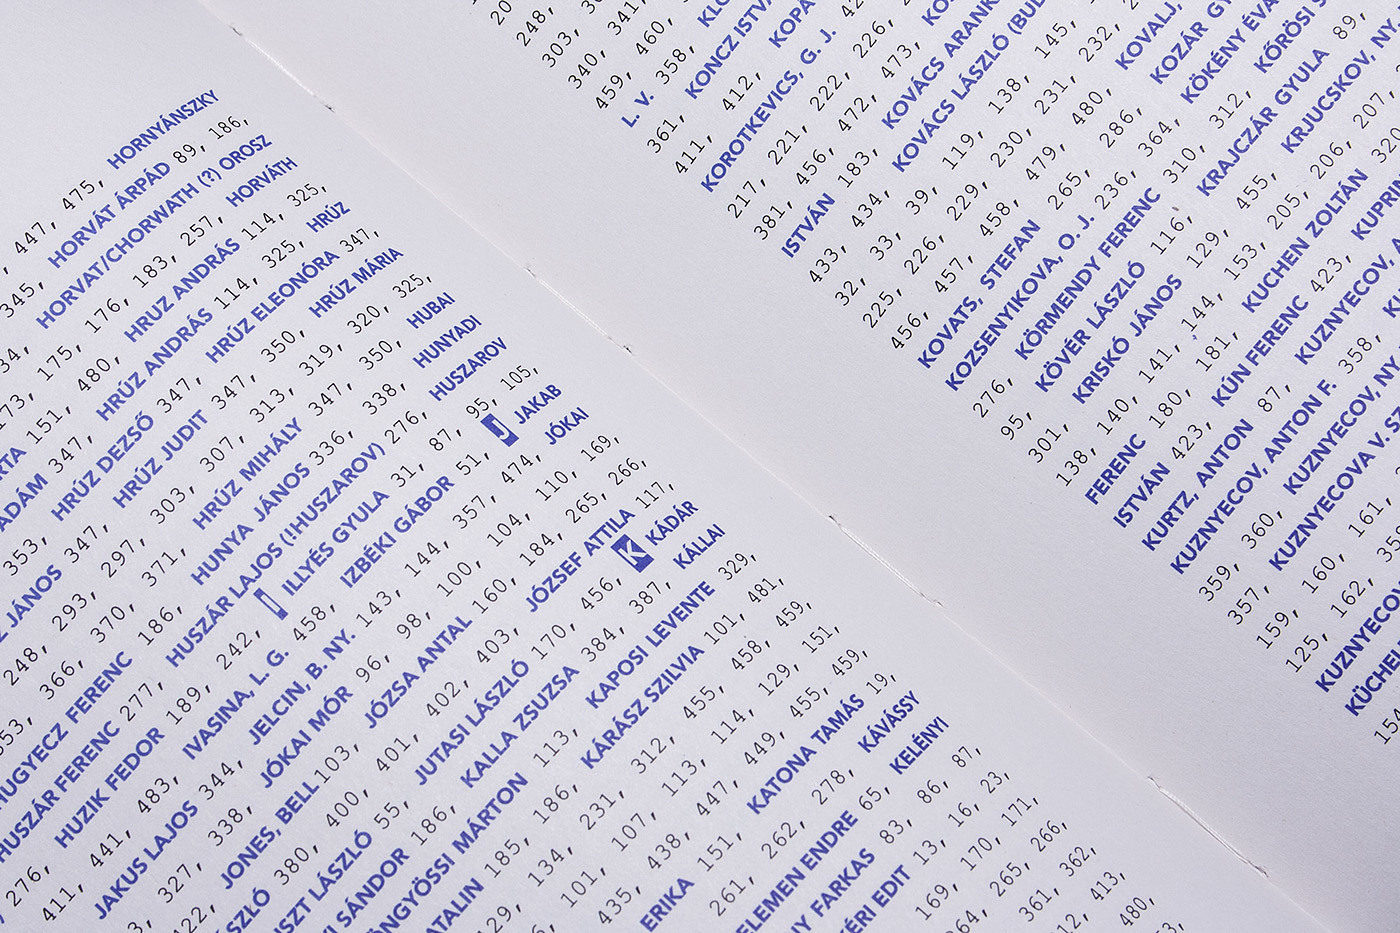 447, 475, HORNYÁNSZKY
345, HORVÁT ÁRPÁD 89, 186,
34, HORVAT/CHORWATH (?) OROSZ
173, 175, 176, 183, 257, HORVÁTH
RTA 151, 480, HRUZ ANDRÁS 114, 325,
ADÁM 347, HRÚZ ANDRÁS 114, 325, HRÚZ
353, HRÚZ DEZSŐ 347, HRÚZ ELEONÓRA 347,
Z JÁNOS 347, HRÚZ JUDIT 347, 350, HRÚZ MÁRIA
248, 293, 297, 303, 307, 313, 319, 320, 325,
353, 366, 370, 371, HRÚZ MIHÁLY 347, 350, HUBAI
HUGYECZ FERENC 186, HUNYA JÁNOS 336, 338, HUNYADI
HUSZÁR FERENC 277, HUSZÁR LAJOS (!HUSZAROV) 276, HUSZAROV
276, HUZIK FEDOR 189, 242, I ILLYÉS GYULA 31, 87, 95, 105,
411, 441, 483, IVASINA, L. G. 458, IZBÉKI GÁBOR 51, J JAKAB
JAKUS LAJOS 344, JELCIN, B. NY. 143, 144, 357, 474, JÓKAI
3, 327, 338, JÓKAI MÓR 96, 98, 100, 104, 110, 169,
122, JONES, BELL 103, JÓZSA ANTAL 160, 184, 265, 266,
ÁSZLÓ 380, 400, 401, 402, 403, JÓZSEF ATTILA 117,
USZT LÁSZLÓ 55, JUTASI LÁSZLÓ 170, 456, K KÁDÁR
I SÁNDOR 186, KALLA ZSUZSA 384, 387, KÁLLAI
ÖNGYÖSSI MÁRTON 113, KAPOSI LEVENTE 329,
ATALIN 185, 186, KÁRÁSZ SZILVIA 101, 481,
129, 134, 231, 312, 455, 458, 459,
101, 107, 113, 114, 129, 151,
435, 438, 447, 449, 455, 459,
ERIKA 151, KATONA TAMÁS 19,
261, 262, 278, KÁVÁSSY
ELEMEN ENDRE 65, KELÉNYI
NY FARKAS 83, 86, 87,
ÉRI EDIT 13, 16, 23,
169, 170, 171,
264, 265, 266,
361, 362,
412, 413,
480,
20
248, 30
303,
340, 341,
459, 460,
L. V. 358, KLO
361, KONCZ ISTVÁ
411, 412, KOPÁ
KOROTKEVICS, G. J. 42
217, 221, 222, 226, 22
381, 456, 472, 473, KO
ISTVÁN 183, KOVÁCS ARANK
433, 434, KOVÁCS LÁSZLÓ (BUD
32, 33, 39, 119, 138, 145,
225, 226, 229, 230, 231, 232, 2
456, 457, 458, 479, 480, KOVALJ,
KOVATS, STEFAN 265, 286, KOZÁR GY
KOZSENYIKOVA, O. J. 236, 364, KÖKÉNY ÉVA
276, KÖRMENDY FERENC 310, 312, KŐRÖSI S
95, KÖVÉR LÁSZLÓ 116, KRAJCZÁR GYULA 89,
301, KRISKÓ JÁNOS 129, 455, KRJUCSKOV, NY.
138, 140, 141, 144, 153, 205, 206, 207,
FERENC 180, 181, KUCHEN ZOLTÁN 320
ISTVÁN 423, KÜN FERENC 423, KUPRI
KURTZ, ANTON 87, KUZNYECOV, A
KUZNYECOV, ANTON F. 358, KU
359, 360, KUZNYECOV, NY.
357, KUZNYECOVA V. SZ
159, 160, 161,
125, 162, 35
KUZNYECO
KÜCHE
154